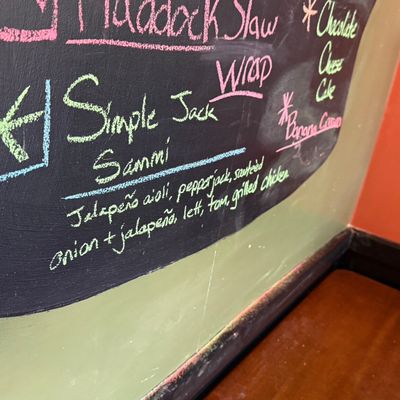 Haddock Slaw
Wrap
Simple Jack
Sammi
Jalapeño aioli, pepperjack, sautéed
onion + jalapeño, lett, tom, grilled chicken
* Chocolate
Cheese
Cake
* Banana